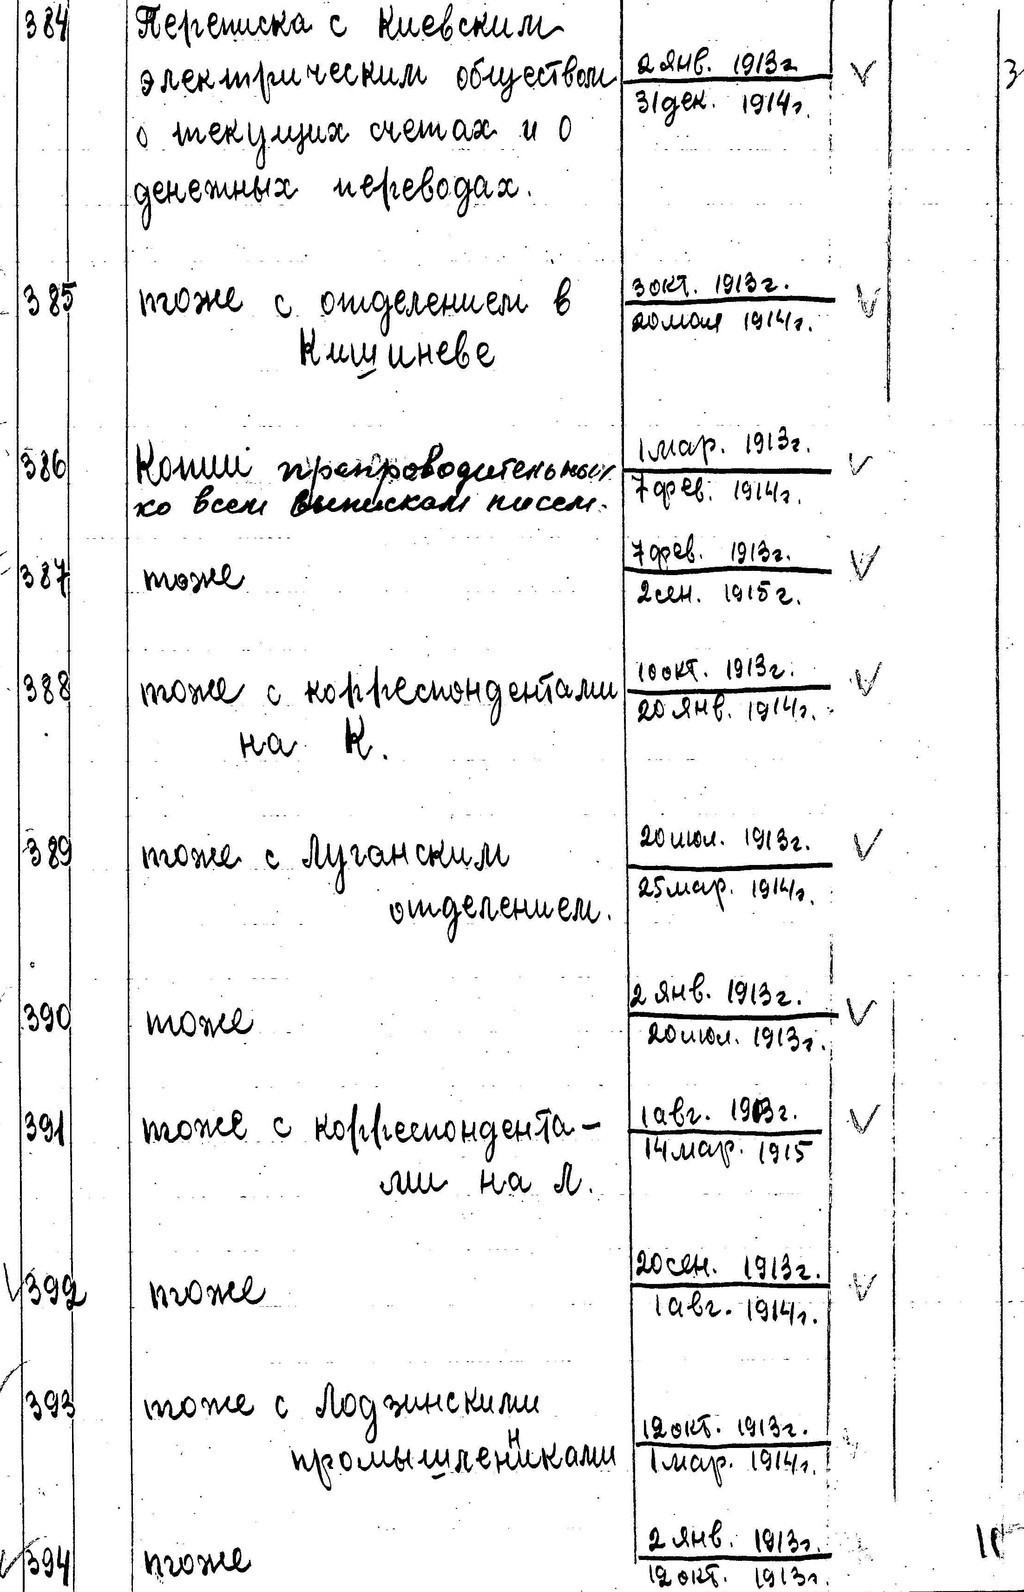 384 Переписка с Киевским
электрическим обществом 2 янв. 1913г.
о текущих счетах и о 31 дек. 1914г.
денежных переводах.
385 тоже с отделением в 3 окт. 1913г.
Кишиневе 20 мая 1914г.
386 Копии препроводительных 1 мар. 1913г.
ко всем выпискам писем. 7 фев. 1914г.
387 тоже 7 фев. 1913г.
2 сен. 1915г.
388 тоже с корреспондентами 10 окт. 1913г.
на К. 20 янв. 1914г.
389 тоже с Луганским 20 июл. 1913г.
отделением. 25 мар. 1914г.
390 тоже 2 янв. 1913г.
20 июл. 1913г.
391 тоже с корреспондента- 1 авг. 1913г.
ми на Л. 14 мар. 1915
392 тоже 20 сен. 1913г.
1 авг. 1914г.
393 тоже с Лодзинскими 12 окт. 1913г.
промышленниками 1 мар. 1914г.
394 тоже 2 янв. 1913г.
12 окт. 1913г.